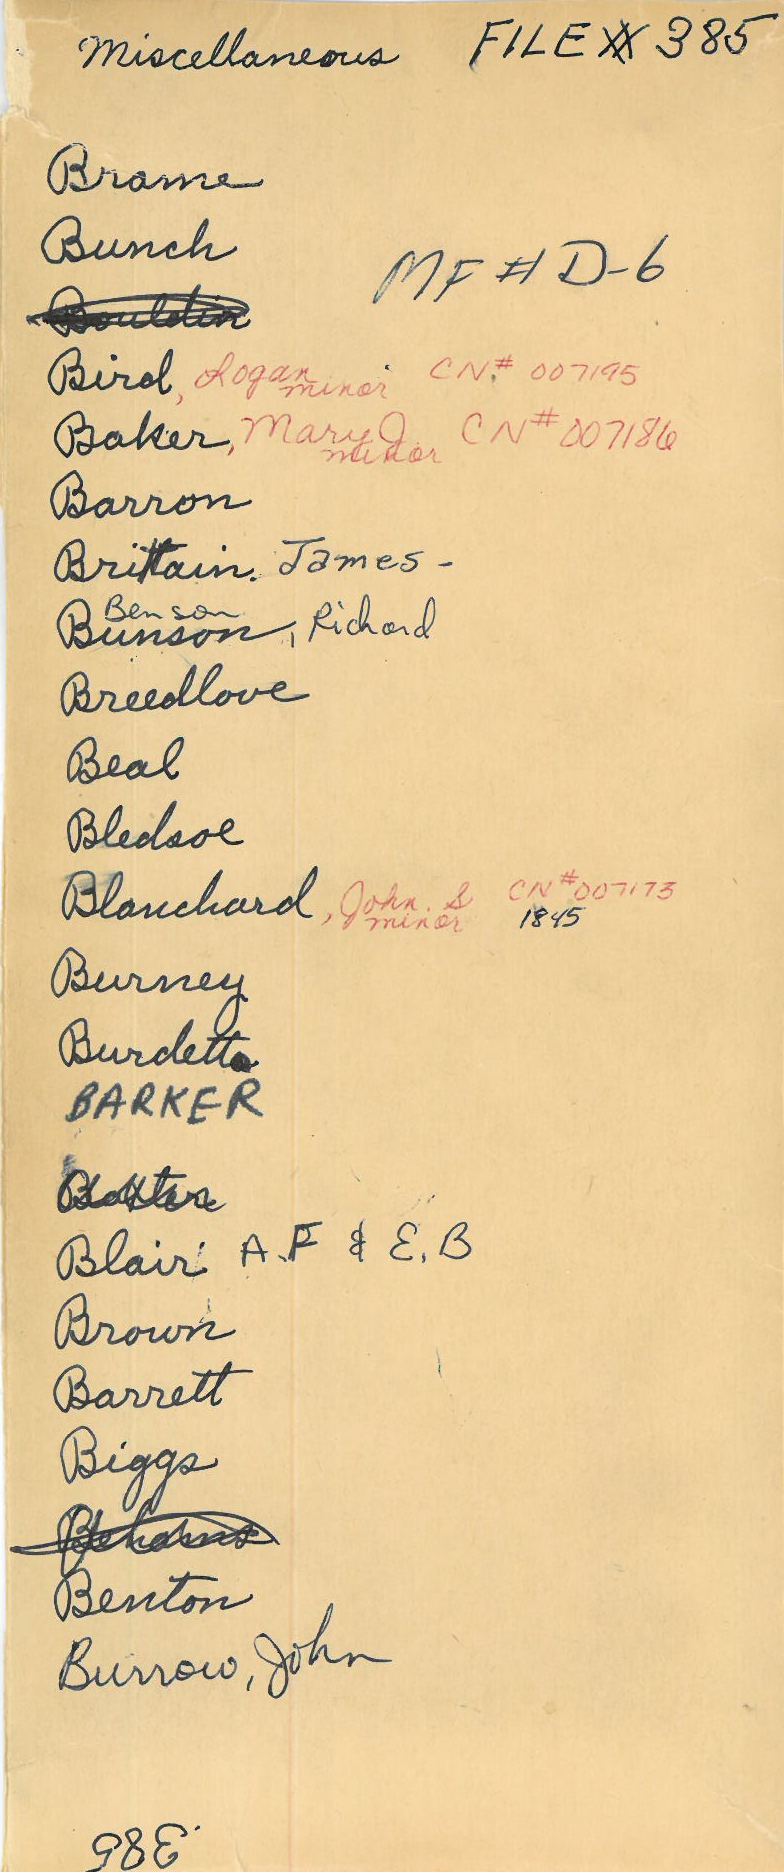 Miscellaneous FILE # 385
Brame
Bunch
MF # D-6
Bouldin
Bird, Logan minor CN# 007195
Baker, Mary J. minor CN# 007186
Barron
Brittain. James -
Benson
Bunson, Richard
Breedlove
Beal
Bledsoe
Blanchard, John. S minor CN# 007173
1845
Burney
Burdett
BARKER
Blair A.F & E.B
Brown
Barrett
Biggs
Benton
Burrow, John
385